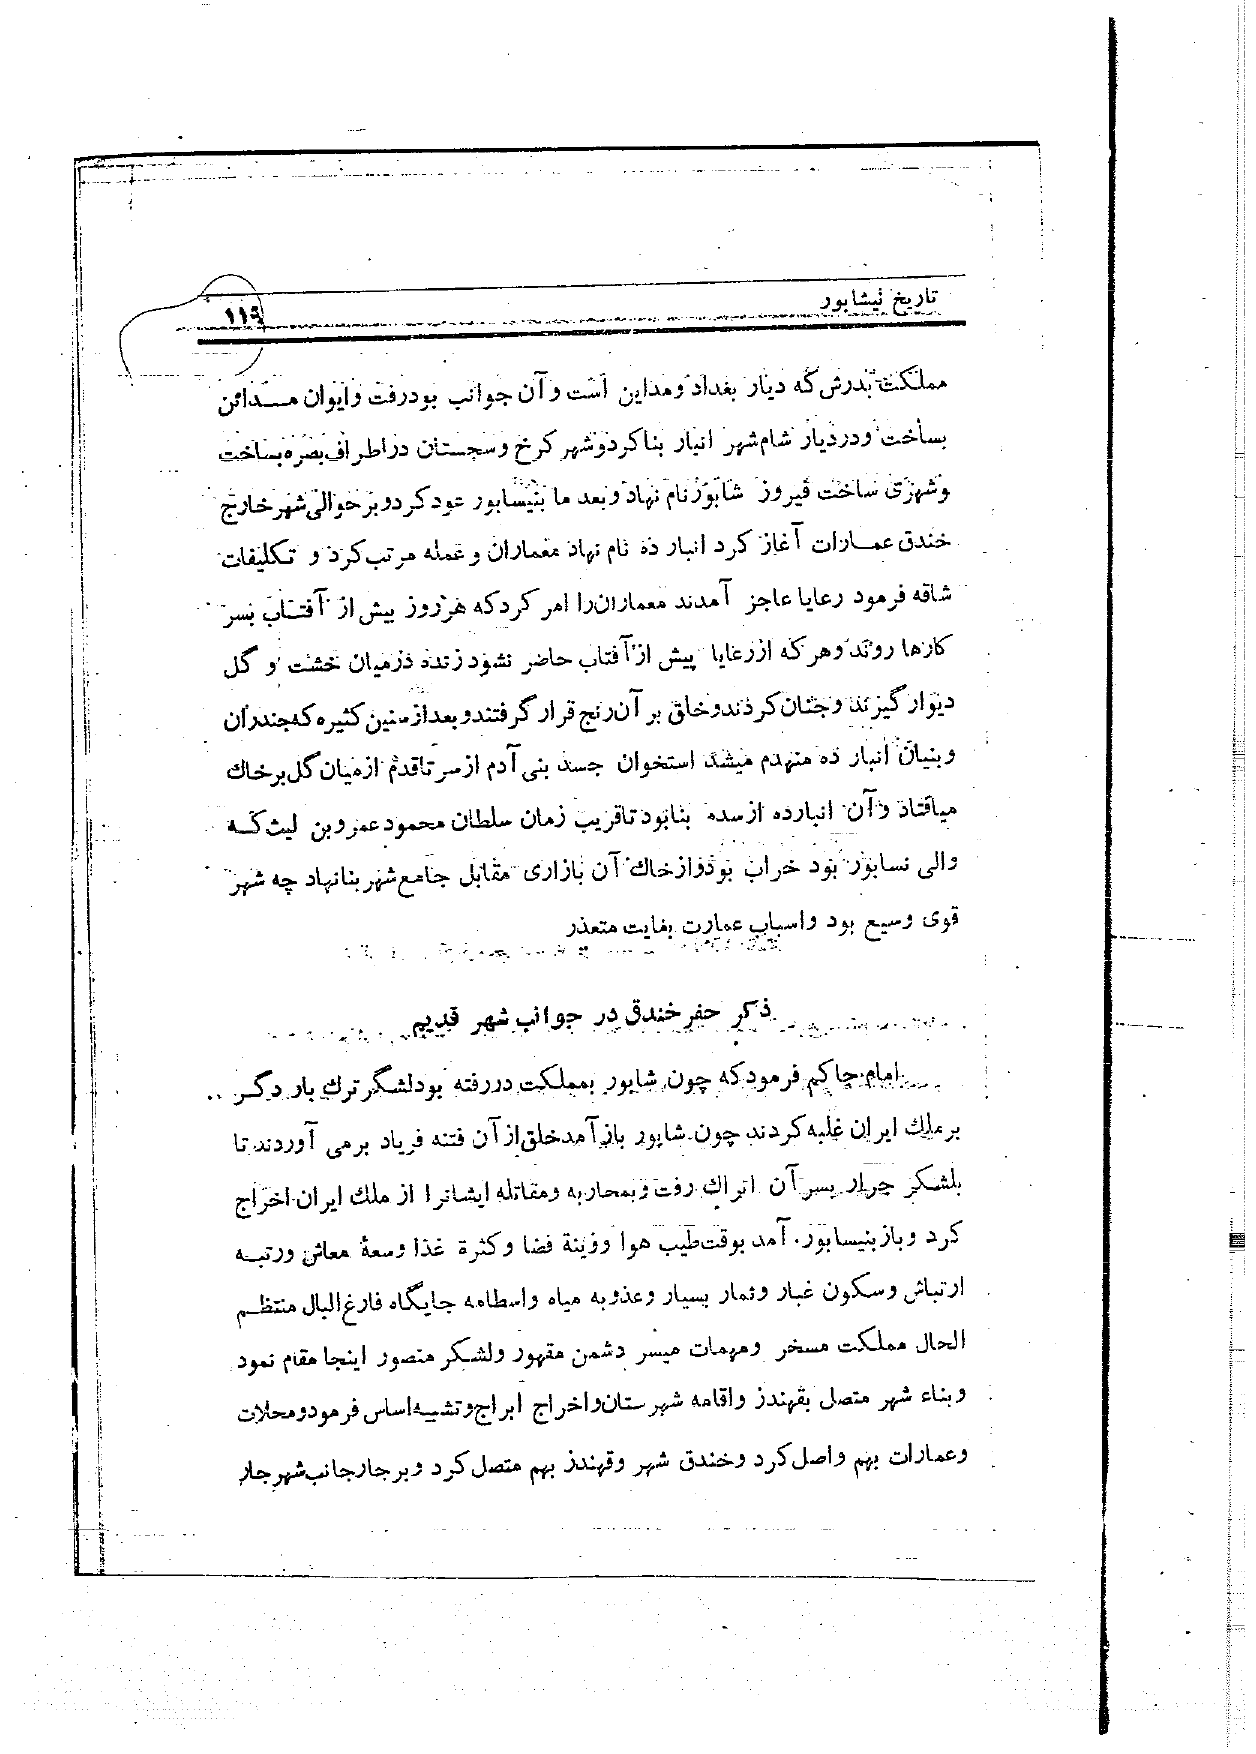 تاریخ نیشابور
۱۱۹
مملکت پدرش که دیار بغداد و مداین است و آن جوانب بود رفت و ایوان مــدائن
بساخت و در دیار شام شهر انبار بنا کرد و شهر کرخ و سجستان در اطراف بصره بساخت
و شهری ساخت فیروز شاپور نام نهاد و بعد ما بنیسابور عود کرد و بر حوالی شهر خارج
خندق عمـارات آغاز کرد انبار ده نام نهاد معماران و عمله مرتب کرد و تکلیفات
شاقه فرمود رعایا عاجز آمدند معماران را امر کرد که هر روز پیش از آفتاب بسر
کارها روند و هر که از رعایا پیش از آفتاب حاضر نشود زنده در میان خشت و گل
دیوار گیرند و چنان کردند و خلق بر آن رنج قرار گرفتند و بعد از سنین کثیره که جندران
و بنیان انبار ده منهدم میشد استخوان جسد بنی آدم از سر تا قدم از میان گل بر خاک
میافتاد و آن انبارده از سده بنا بود تا قریب زمان سلطان محمود عمرو بن لیث کـه
والی نسابور بود خراب بود و از خاک آن بازاری مقابل جامع شهر بنا نهاد چه شهر
قوی وسیع بود و اسباب عمارت بغایت متعذر
ذکر حفر خندق در جوانب شهر قدیم
امام حاکم فرمود که چون شاپور بمملکت در رفته بود لشگر ترك بار دگـر
بر ملك ایران غلبه کردند چون شاپور باز آمد خلق از آن فتنه فریاد بر می آوردند تا
بلشکر جرار بسر آن اتراك رفت و بمحاربه و مقاتله ایشانرا از ملك ایران اخراج
کرد و باز بنیسابور آمد بوقت طیب هوا و زینة فضا و کثرة غذا و سعة معاش و رتبـه
ارتیاش و سکون غبار و ثمار بسیار و عذوبه میاه و اسطامه جایگاه فارغ البال منتظـم
الحال مملکت مسخر و مهمات میسر دشمن مقهور و لشکر منصور اینجا مقام نمود
و بناء شهر متصل بقهندز و اقامه شهرستان و اخراج ابراج و تشیه اساس فرمود و محلات
و عمارات بهم واصل کرد و خندق شهر و قهندز بهم متصل کرد و بر چار جانب شهر چار